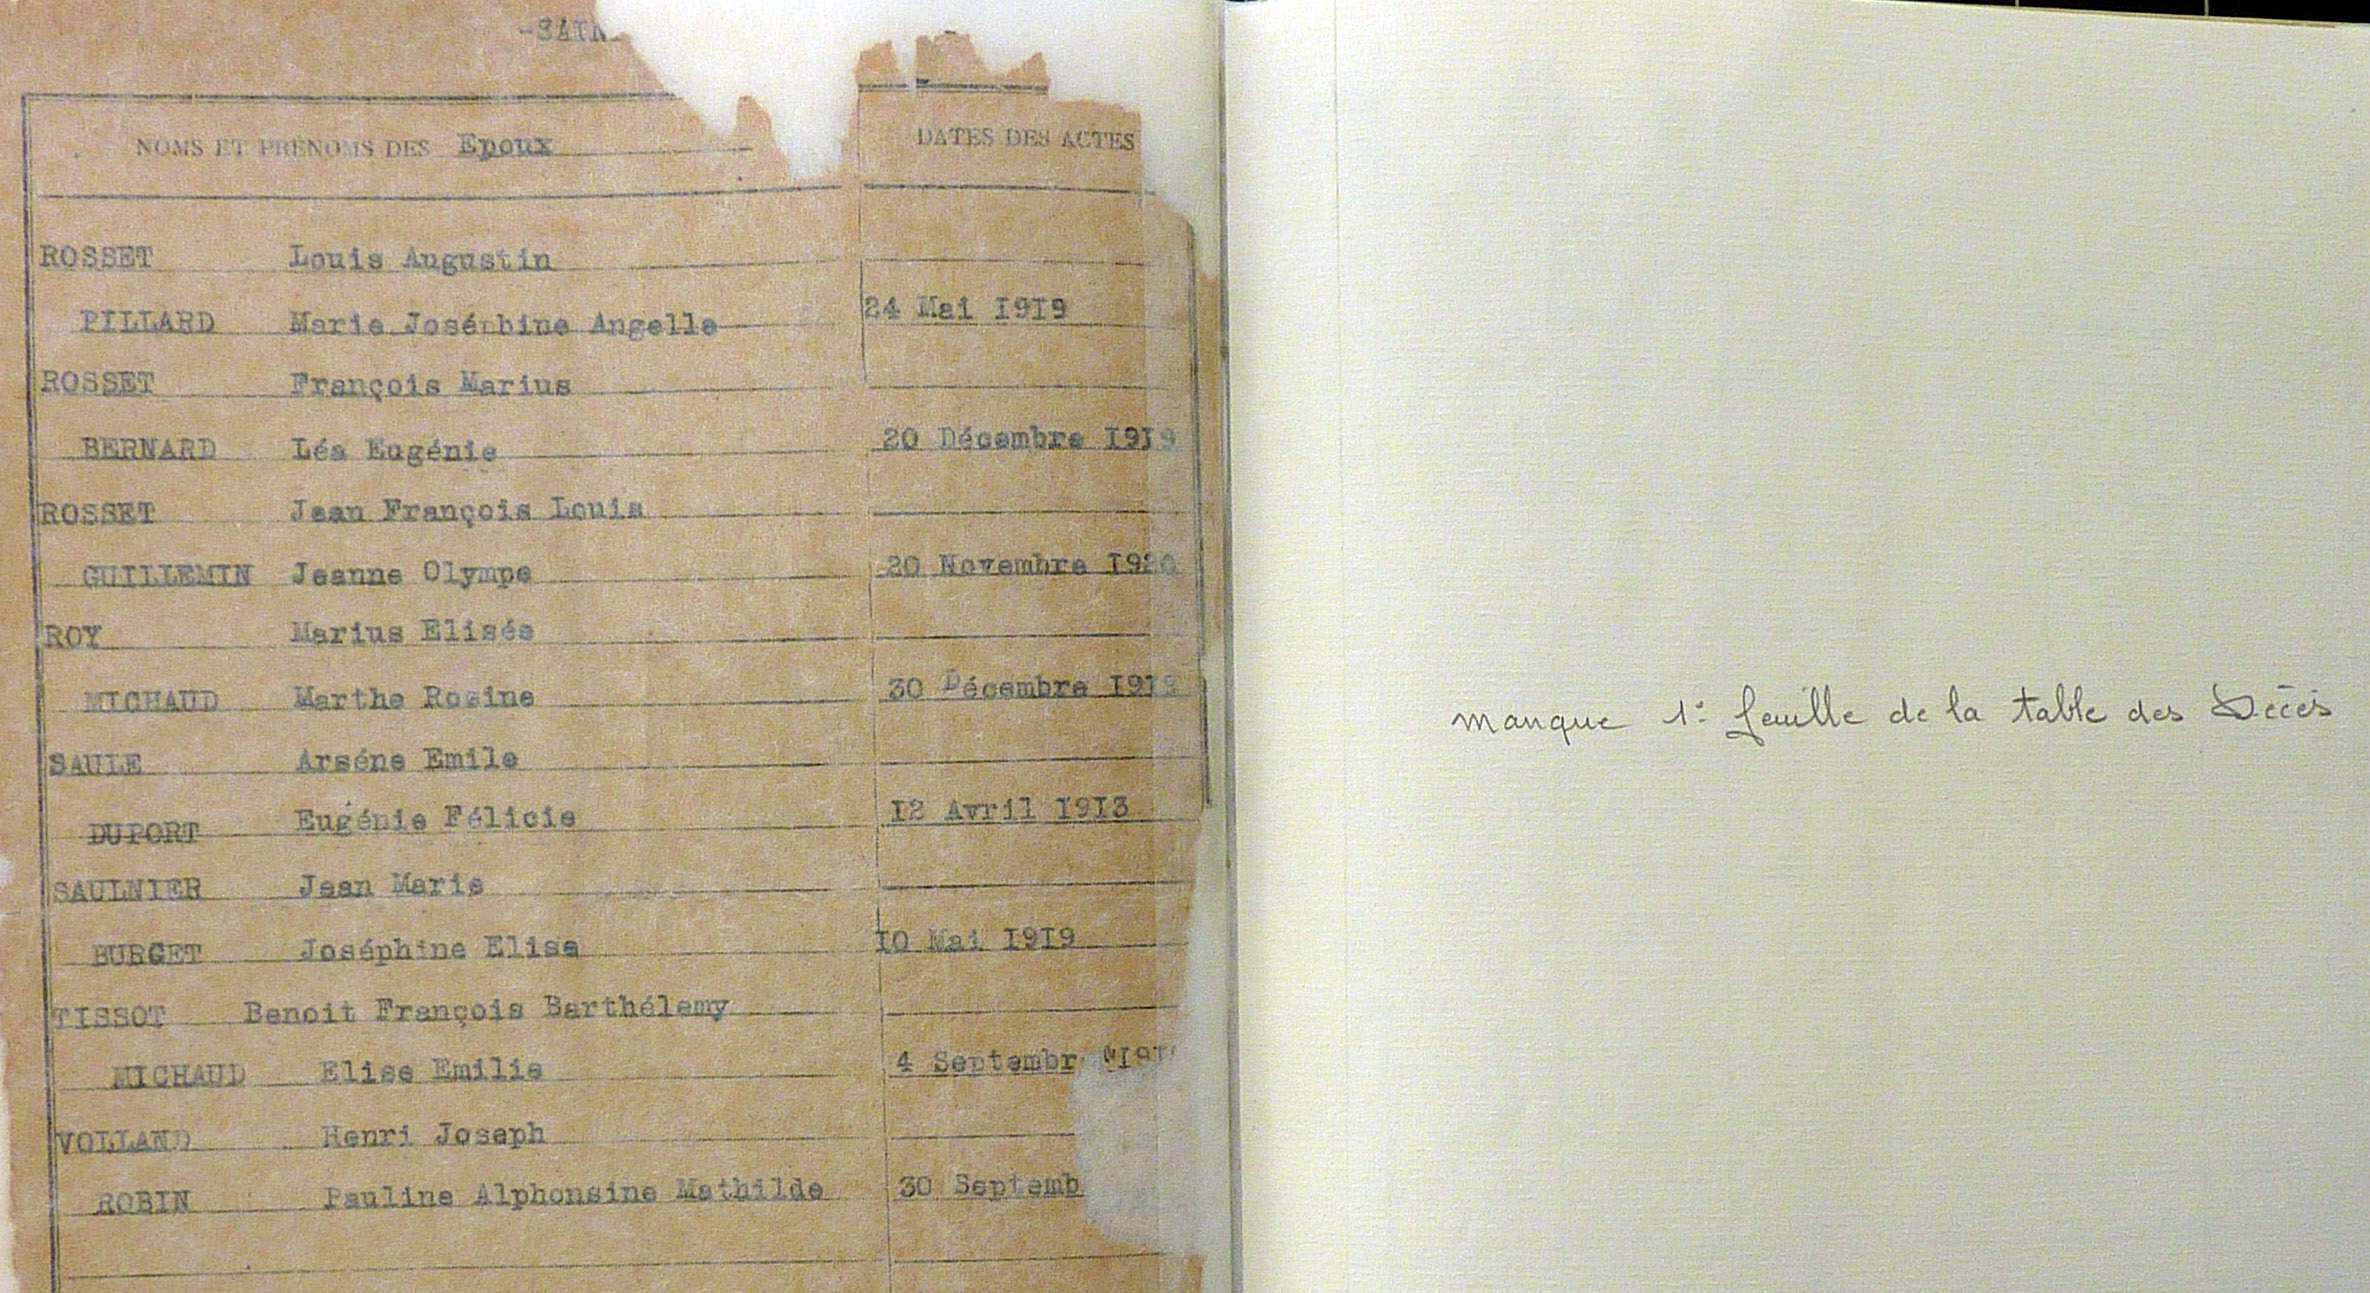 -SAIN
NOMS ET PRÉNOMS DES Epoux DATES DES ACTES
ROSSET Louis Augustin
PILLARD Marie Joséphine Angelle 24 Mai I9I9
ROSSET François Marius
BERNARD Léa Eugénie 20 Décembre I9I9
ROSSET Jean François Louis
GUILLEMIN Jeanne Olympe 20 Novembre I920
ROY Marius Elisée
MICHAUD Marthe Rosine 30 Décembre
SAULE Arséne Emile
DUPORT Eugénie Félicie I2 Avril I9I3
SAULNIER Jean Marie
BURGET Joséphine Elise I0 Mai I9I9
TISSOT Benoit François Barthélemy
MICHAUD Elise Emilie 4 Septembr
VOLLAND Henri Joseph
ROBIN Pauline Alphonsine Mathilde 30 Septemb
manque 1e feuille de la table des Décès